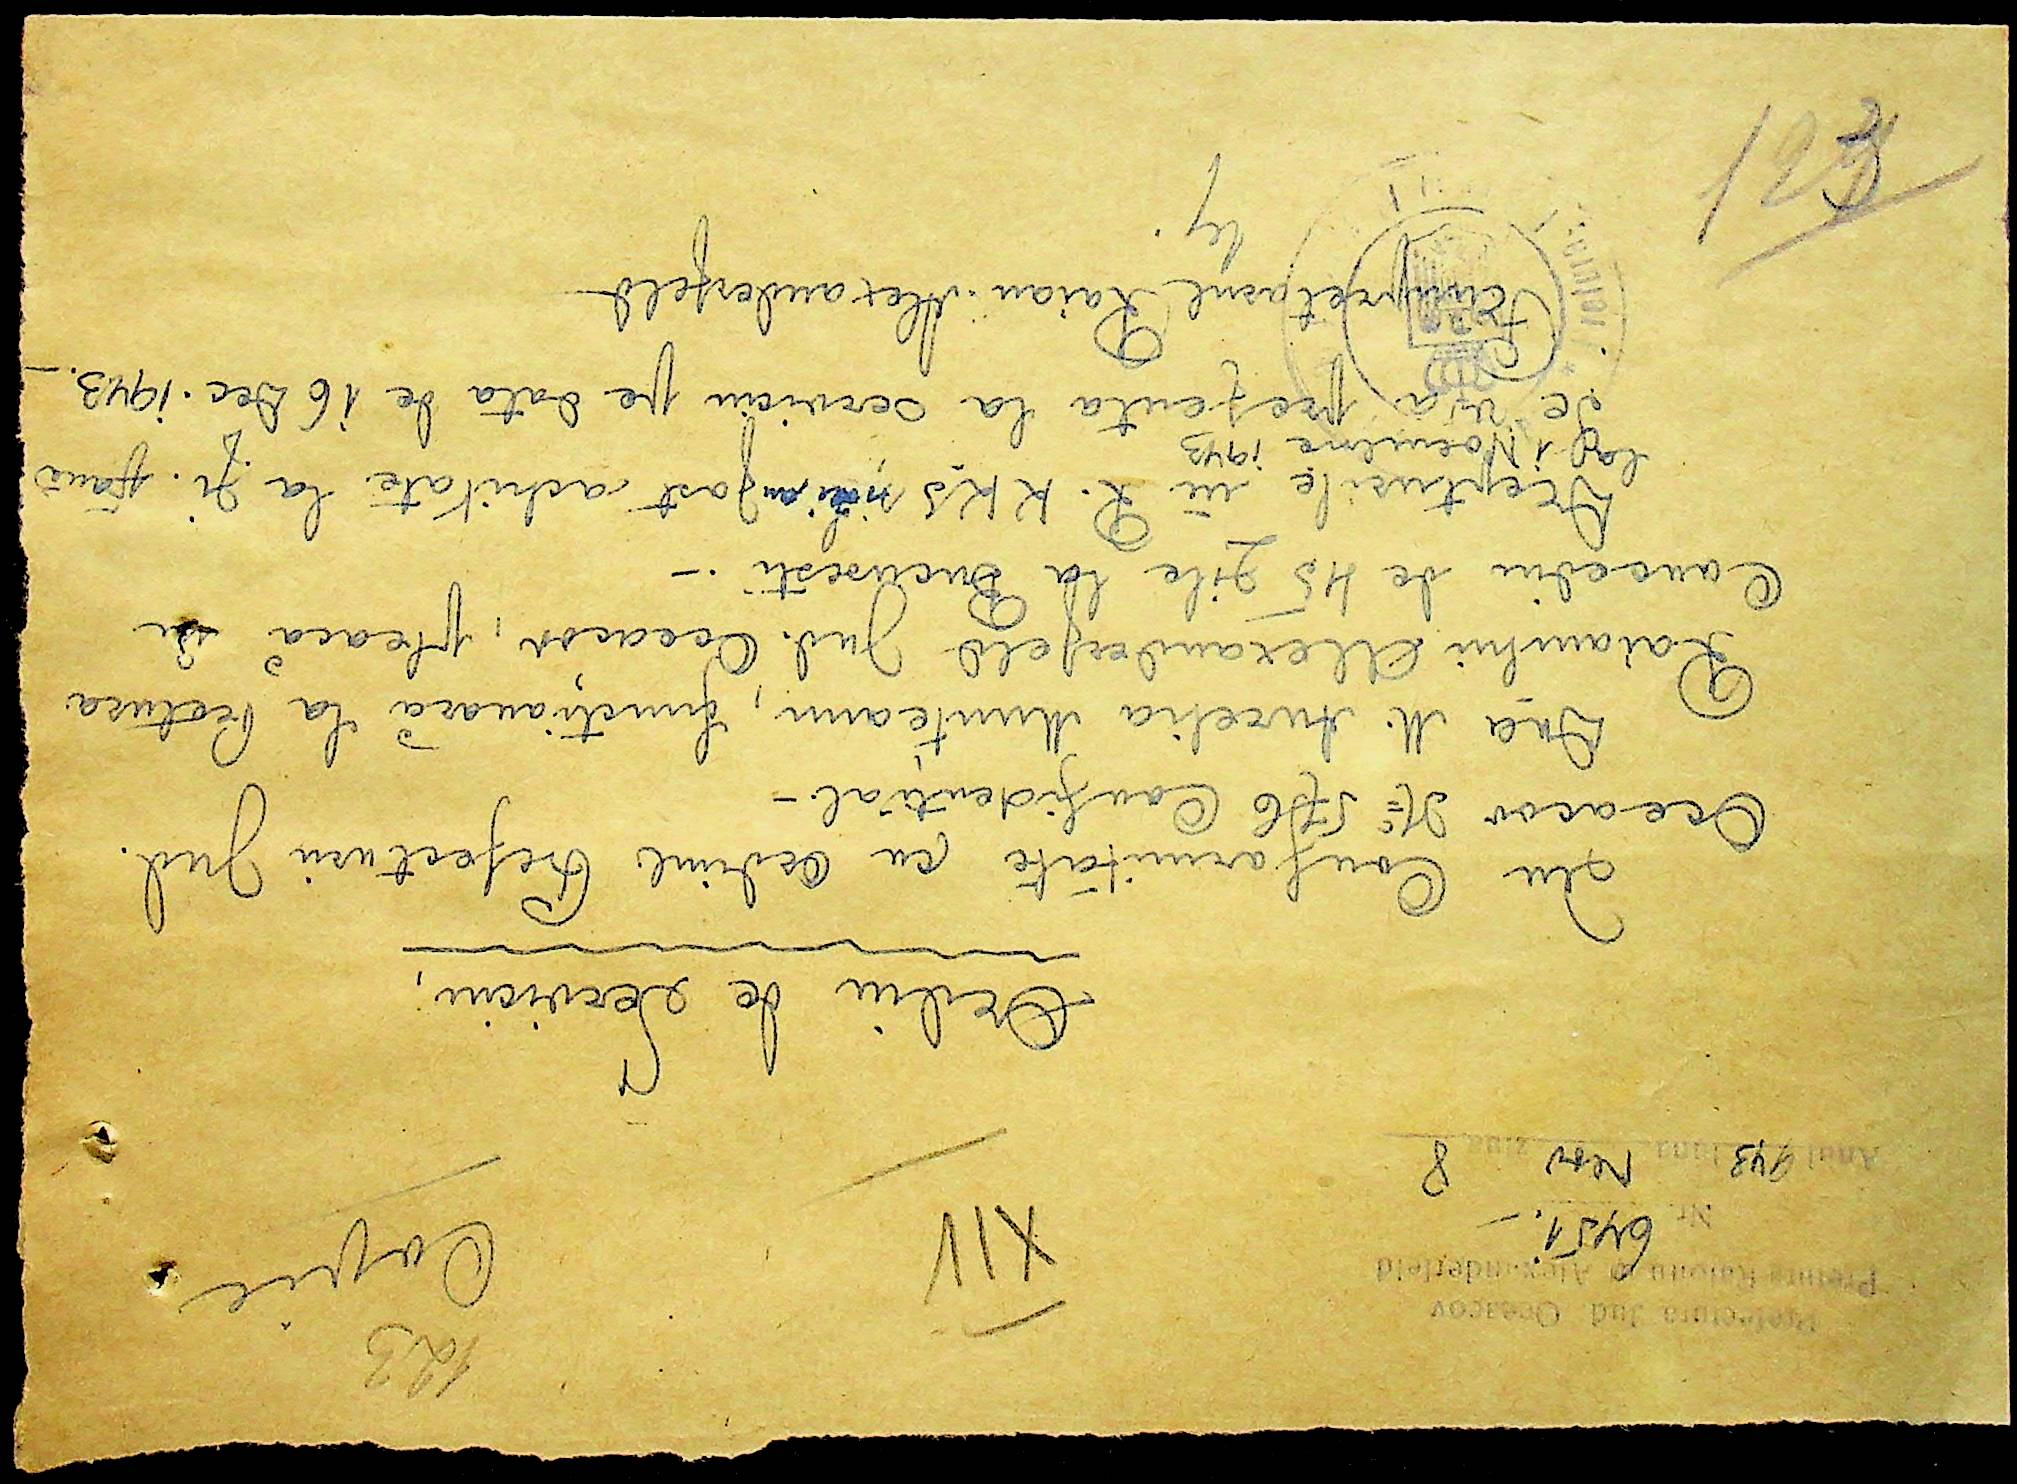 Prefectura Jud. Oceacov
Pretura Raionului Alexanderfeld
Nr. 6451.-
Anul 943 luna Nov ziua 8
XIV
123
Copie
Ordin de Serviciu,
In Conformitate cu Ordinul Prefecturii Jud.
Oceacov No 576 Confidential.-
Dna M. Aurelia Munteanu, funcționară la Pretura
Raionului Alexanderfeld Jud. Oceacov, pleacă în
Concediu de 45 zile la București.-
Drepturile in R.KKS nu i-au fost achitate la zi. pană
la 1 Noemvrie 1943
Se va prezenta la serviciu pe data de 16 Dec. 1943.-
Pretorul Raion. Alexanderfeld
123